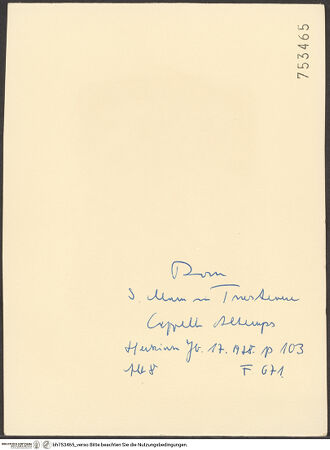 753465
Rom
S. Maria in Trastevere
Cappella Altemps
Jb. 17. 1978. p 103
Abb 8 F 671
bh753465_verso Bitte beachten Sie die Nutzungsbedingungen.